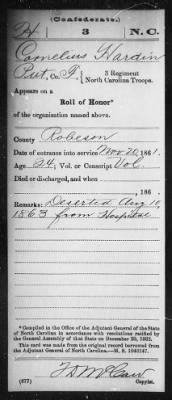 (Confederate.)
H 3 N.C.
Cornelius Hardin
Pvt., Co. F, 3 Regiment
North Carolina Troops.
Appears on a
Roll of Honor*
of the organization named above.
County Robeson
Date of entrance into service Nov 20, 1861.
Age 24; Vol. or Conscript Vol.
Died or discharged, and when
, 186 .
Remarks: Deserted Aug 10,
1863 from Hospital
*Compiled in the Office of the Adjutant General of the State of North Carolina in accordance with resolutions ratified by the General Assembly of that State on
This card was made from the original record borrowed from the Adjutant General of North Carolina.—
(677) Copyist.